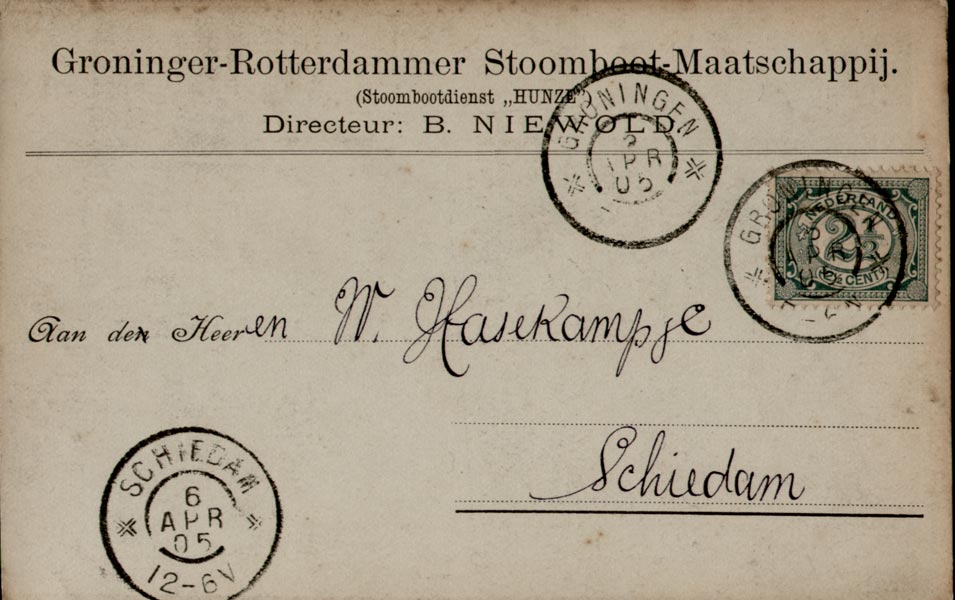 Groninger-Rotterdammer Stoomboot-Maatschappij.
(Stoombootdienst „HUNZE”)
Directeur: B. NIEWOLD.
GRONINGEN
APR
05
GRONINGEN
NEDERLAND
2½
2½ CENT
Aan den Heeren W. Hasekampje
Schiedam
SCHIEDAM
6
APR
05
12-6V